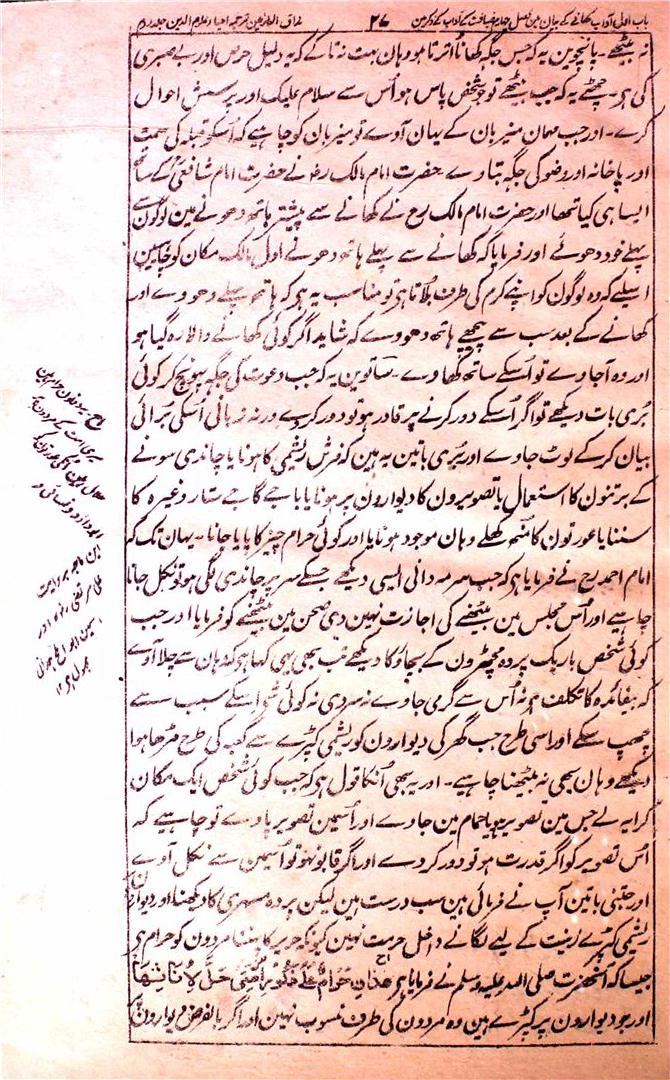 باب اول آداب کھانے کے بیان مین فصل چہارم ضیافت کے آداب کے ذکر مین ۲۷ مذاق العارفین ترجمہ احیاء علوم الدین جلد دوم
نہ بیٹھے۔ پانچوین یہ کہ جس جگہ کھانا اُترتا ہو وہان بہت نہ تاکے کہ یہ دلیل حرص اور بے صبری
کی ہے۔ چھٹے یہ کہ جب بیٹھے تو جو شخص پاس ہو اُس سے سلام علیک اور پرسش احوال
کرے۔ اور جب مہمان میزبان کے یہان آوے تو میزبان کو چاہیے کہ اُسکو قبلہ کی سمت
اور پاخانہ اور وضو کی جگہ بتا دے حضرت امام مالک رح نے حضرت امام شافعی رح کے ساتھ
ایسا ہی کیا تھا اور حضرت امام مالک رح نے کھانے سے پیشتر ہاتھ دھونے مین لوگون سے
پہلے خود دھوئے اور فرمایا کہ کھانے سے پہلے ہاتھ دھونے اول مالک مکان کو چاہیین
اسلیے کہ وہ لوگون کو اپنے کرم کی طرف بلاتا ہے تو مناسب یہ ہے کہ ہاتھ پہلے دھووے اور
کھانے کے بعد سب سے پیچھے ہاتھ دھووے کہ شاید اگر کوئی کھانے والا رہ گیا ہو
اور وہ آجاوے تو اُسکے ساتھ کھاوے۔ ساتوین یہ کہ جب دعوت کی جگہ پہونچ کر کوئی
بُری بات دیکھے تو اگر اُسکے دور کرنے پر قادر ہو تو دور کرے ورنہ زبانی اُسکی بُرائی
بیان کر کے لوٹ جاوے اور بُری باتین یہ ہین کہ فرش ریشمی کا ہونا یا چاندی سونے
کے برتنون کا استعمال یا تصویرون کا دیوارون پر ہونا یا باجے گاجے ستار وغیرہ کا
سننا یا عورتون کا مُنھ کھلے وہان موجود ہونا یا اور کوئی حرام چیز کا پایا جانا۔ یہان تک کہ
امام احمد رح نے فرمایا ہے کہ جب سرمہ دانی ایسی دیکھے جسکے سر پر چاندی لگی ہو تو نکل جانا
چاہیے اور اُس مجلس مین بیٹھنے کی اجازت نہین دی صحن مین بیٹھنے کو فرمایا اور جب
کوئی شخص باریک پردہ مچھرون کے بچاؤ کا دیکھے تب بھی یہی کہا ہے کہ وہان سے چلا آوے
کہ بیفائدہ کا تکلف ہے نہ اُس سے گرمی جاوے نہ سردی نہ کوئی شے اُسکے سبب سے
چھپ سکے اور اسی طرح جب گھر کی دیوارون کو ریشمی کپڑے سے کعبہ کی طرح منڈھا ہوا
دیکھے وہان بھی نہ بیٹھنا چاہیے۔ اور یہ بھی اُنکا قول ہے کہ جب کوئی شخص ایک مکان
کرایہ لے جس مین تصویر ہو یا حمام مین جاوے اور اُسمین تصویر پاوے تو چاہیے کہ
اُس تصویر کو اگر قدرت ہو تو دور کر دے اور اگر قابو نہو تو اُسمین سے نکل آوے
اور جتنی باتین آپ نے فرمائی ہین سب درست ہین لیکن پردہ مسہری کا دیکھنا اور دیوارون
ریشمی کپڑے زینت کے لیے لگانے داخل حرمت نہین کیونکہ حریر کا پہننا مردون کو حرام ہے
جیسا کہ آنحضرت صلی اللہ علیہ وسلم نے فرمایا ہے ھٰذَانِ حَرَامٌ عَلٰی ذُکُوْرِ اُمَّتِیْ حِلٌّ لِاُنَاثِھَا
اور جو دیوارون پر کپڑے ہین وہ مردون کی طرف منسوب نہین اور اگر بالفرض دیوارون پر
یہ دونون حرام ہین
میری امت کے مردون پر
حلال ہین اُنکی عورتون کو
ابوداؤد و نسائی و
ابن ماجہ بروایت
علی مرتضی رض اور